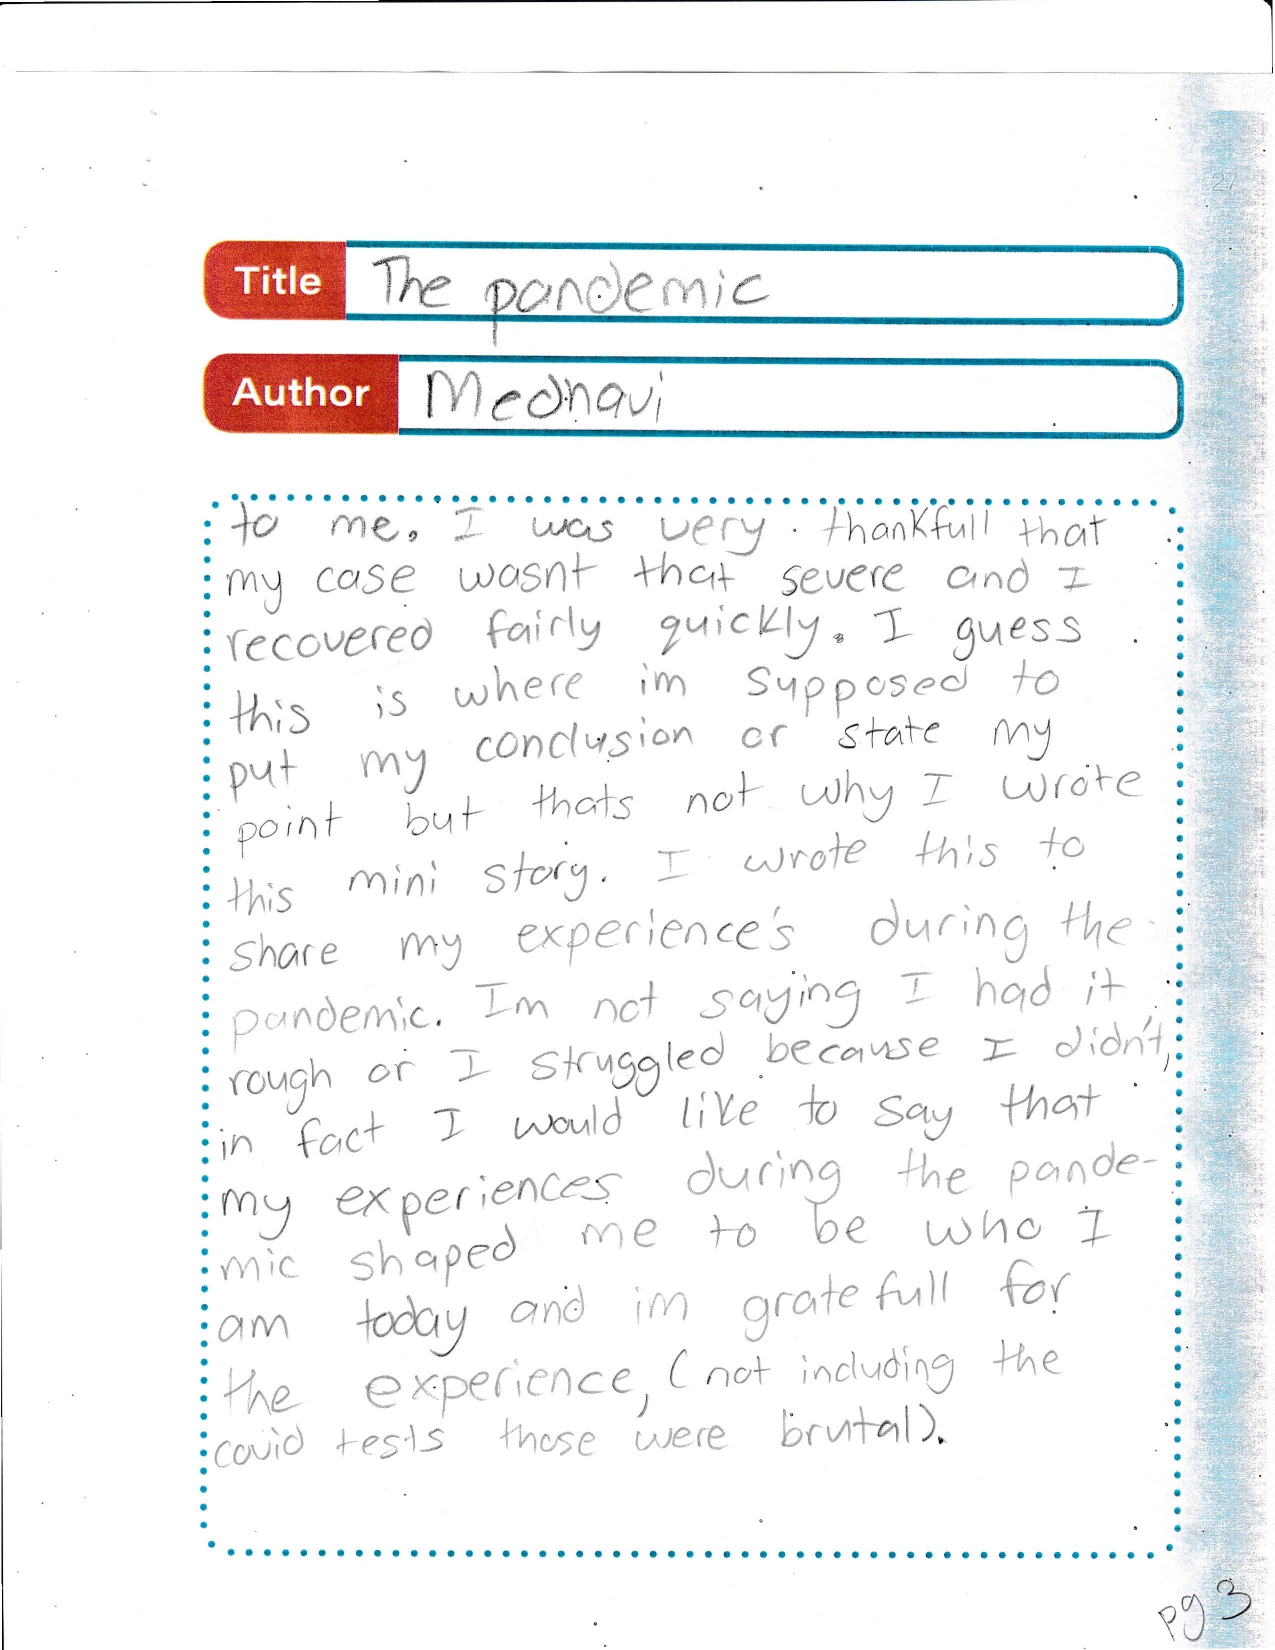 27
Title The pandemic
Author Medhavi
to me. I was very thankfull that
my case wasnt that severe and I
recovered fairly quickly. I guess
this is where im supposed to
put my conclusion or state my
point but thats not why I wrote
this mini story. I wrote this to
share my experience's during the
pandemic. Im not saying I had it
rough or I struggled because I didn't,
in fact I would like to say that
my experiences during the pande-
mic shaped me to be who I
am today and im gratefull for
the experience, (not including the
covid tests those were brutal).
pg 3